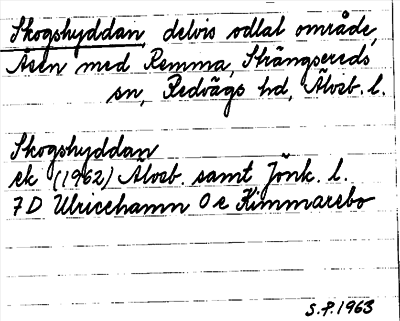 Skogshyddan, delvis odlat område,
Åsen med Remma, Strängsereds
sn, Redvägs hd, Älvsb. l.
Skogshyddan
ek (1962) Älvsb. samt Jönk. l.
7D Ulricehamn 0e Kimmarebo
S.P. 1963